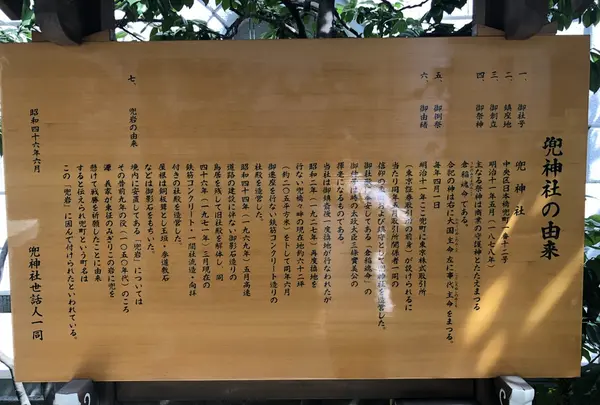 兜神社の由来
一、御社号 兜神社
二、鎮座地 中央区日本橋兜町一番十二号
三、御創立 明治十一年五月(一八七八年)
四、御祭神 主なる祭神は商業の守護神とたたえまつる
倉稲魂命である。
合祀の神は右に大国主命 左に事代主命をまつる。
五、御例祭 毎年四月一日
六、御由緒 明治十一年ここ兜町に東京株式取引所
(東京証券取引所の前身)が設けられるに
当たり同年五月取引所関係者一同の
信仰の象徴および鎮守として兜神社を造営した。
御社殿に奉安してある「倉稲魂命」の
御神体は時の太政大臣三條實美公の
揮毫になるものである。
当社は御鎮座後一度換地が行なわれたが
昭和二年(一九二七年)再度換地を
行ない兜橋々畔の現在地約六十二坪
(約二〇五平方米)をトして同年六月
御遷座を行ない鉄筋コンクリート造りの
社殿を造営した。
昭和四十四年(一九六九年)五月高速
道路の建設に伴ない御影石造りの
鳥居を残して旧社殿を解体し 同
四十六年(一九七一年)三月現在の
鉄筋コンクリート・一間社流造・向拝
付きの社殿を造営した。
屋根は銅板葺とし玉垣・参道敷石
などは御影石をもちいた。
七、兜岩の由来 境内に安置してある「兜岩」については
その昔前九年の役(一〇五〇年代)のころ
源 義家が東征のみぎりこの岩に兜を
懸けて戦勝を祈願したことに由来
すると伝えられ兜町という町名は
この「兜岩」に因んで付けられたといわれている。
昭和四十六年六月
兜神社世話人一同